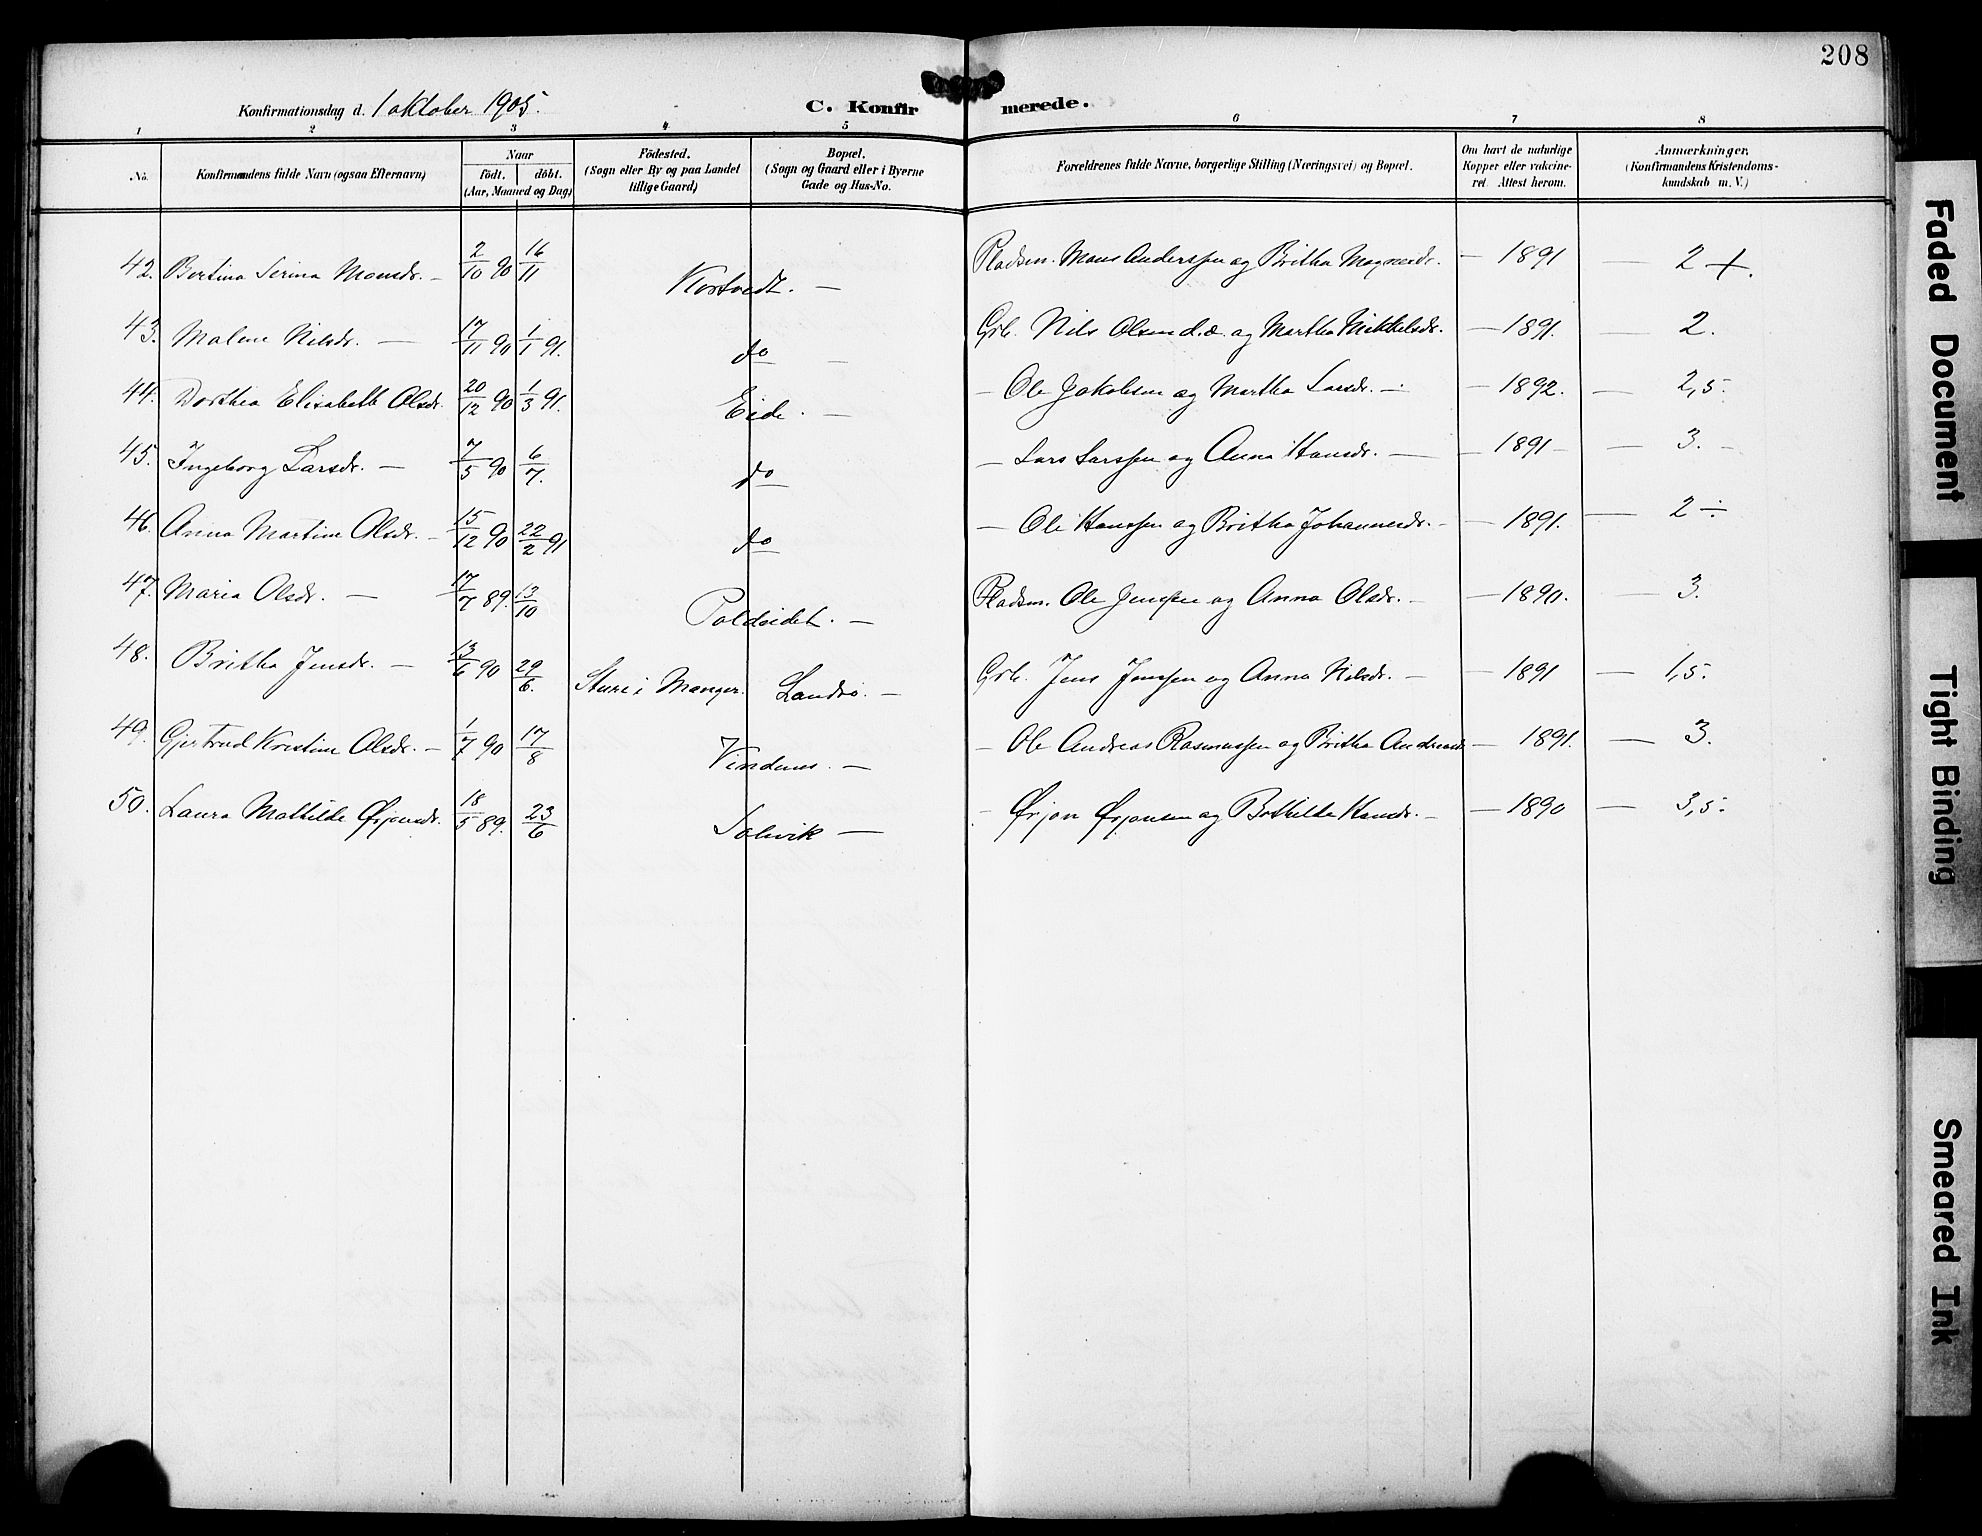 208
Konfirmationsdag d. 1 oktober 1905. C. Konfirmerede.
1 2 3 4 5 6 7 8
No. Konfirmandens fulde Navn (ogsaa Efternavn) Naar födt. döbt. (Aar, Maaned og Dag) Födested. (Sogn eller By og paa Landet tillige Gaard) Bopæl. (Sogn og Gaard eller i Byerne Gade og Hus-No. Forældrenes fulde Navne, borgerlige Stilling (Næringsvei) og Bopæl. Om havt de naturlige Kopper eller vakcineret. Attest herom. Anmærkninger, (Konfirmandens Kristendomskundskab m. V.)
42. Bertina Serina Monsdr. — 2/10 90 16/11 — Pladsm. Mons Anderssen og Britha Magnusdr. — 1891 — 2 +.
43. Malene Nilsdr. — 17/11 90 1/1 91. do — Grb. Nils Olsen d.æ. og Martha Mikkelsdr. — 1891. — 2.
44. Dorthea Elisabeth Olsdr. 20/12 90 1/3 91. Eide. — — Ole Jakobsen og Martha Larsdr. — — 1892. — 2,5.
45. Ingeborg Larsdr. — 7/5 90 6/7. do — Lars Larssen og Anna Hansdr. — — 1891 — — 3. —
46. Anna Martine Olsdr. — 15/12 90 22/2 91 do — Ole Hanssen og Britha Johannesdr. — — 1891. — 2 ÷
47. Maria Olsdr. — 17/7 89. 13/10 — Pladsm. Ole Jenssen og Anna Olsdr. — — 1890. — 3.
48. Britha Jensdr. — 13/6 90 29/6. Sture i Manger. Landrø. — Grb. Jens Jenssen og Anna Nilsdr. — — 1891 — 1,5.
49. Gjertrud Kristine Olsdr. — 1/7 90 17/8 Vindenes. — — Ole Andreas Rasmussen og Britha Andreasd. — 1891. — 3.
50. Laura Mathilde Ørjansdr. 18/5 89. 23/6 Solvik — — Ørjan Ørjansen og Bothilda Hansdr. — — 1890 — 3,5.
Faded Document
Tight Binding
Smeared Ink